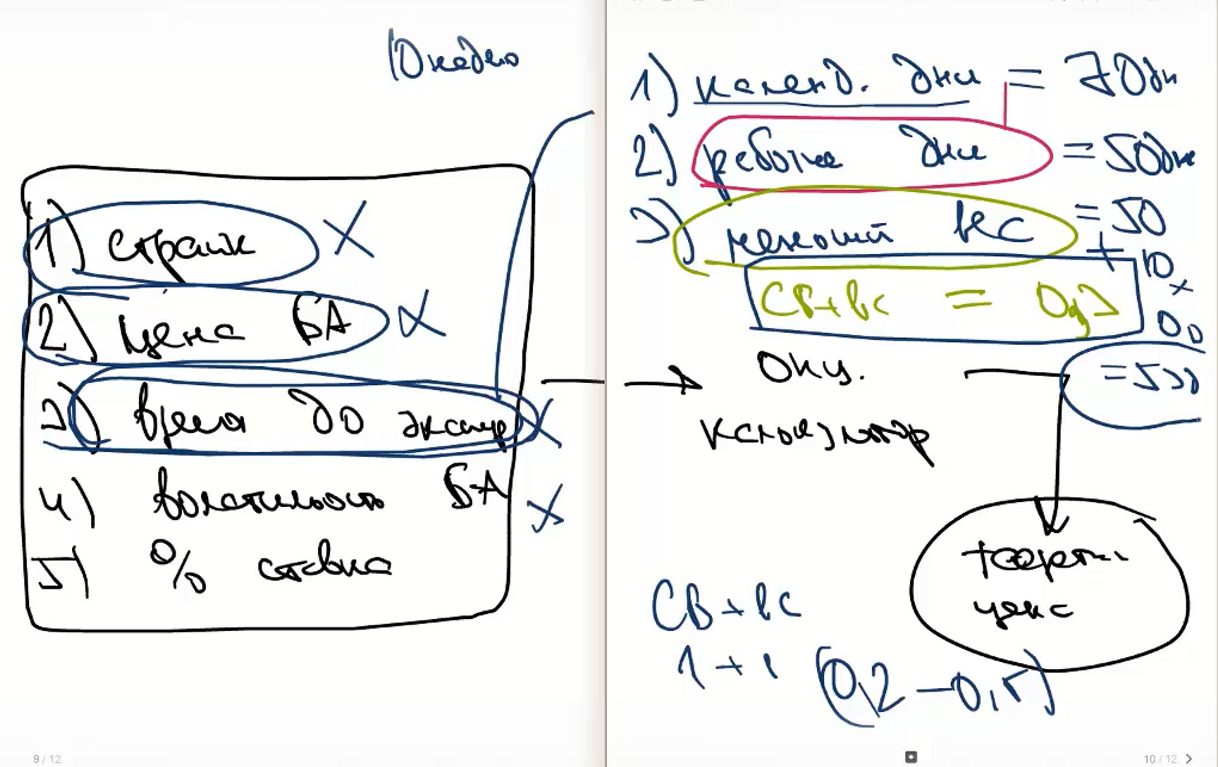 10 недель
1) страйк X
2) цена БА X
3) время до экспир X
4) волатильность БА X
5) % ставка
9 / 12
1) календ. дни = 70дн
2) рабочие дни = 50дн
3) = 50
+ 10
СБ+ВС = x
Опц.
калькулятор
теорет.
цена
СБ+ВС
1 + 1 (0,2 - 0,5)
10 / 12